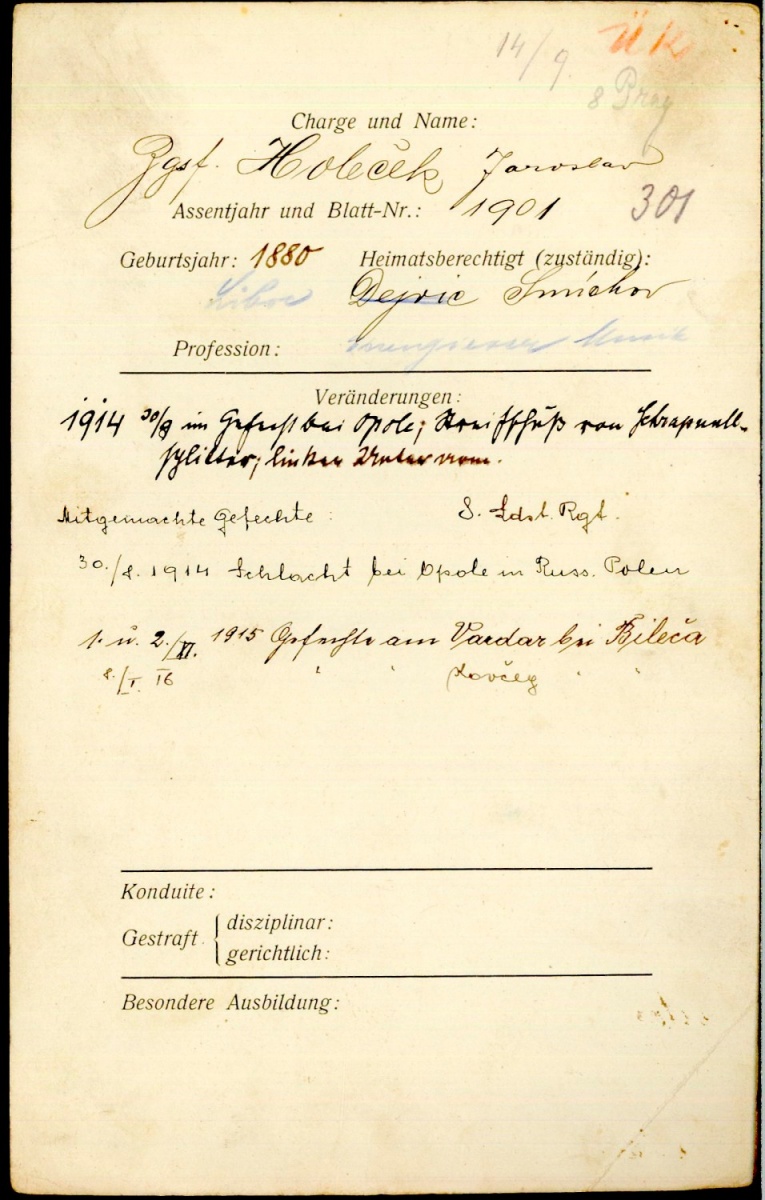 14/9. ÜK
8 Prag
Charge und Name:
Zgsf. Holeček Jaroslav
Assentjahr und Blatt-Nr.: 1901 301
Geburtsjahr: 1880 Heimatsberechtigt (zuständig):
Dejvic Smíchov
Profession:
Veränderungen:
1914 30/8 im Gefecht bei Opole; Streifschuß von Schrapnell-
splitter; linker Unterarm.
Mitgemachte Gefechte: 8. Ldst. Rgt.
30./8. 1914 Schlacht bei Opole in Russ. Polen
1. u. 2./XI. 1915 Gefechte am Vardar bei Bileća
8./I. 16 " " Kovčeg " "
Konduite:
Gestraft { disziplinar:
gerichtlich:
Besondere Ausbildung: